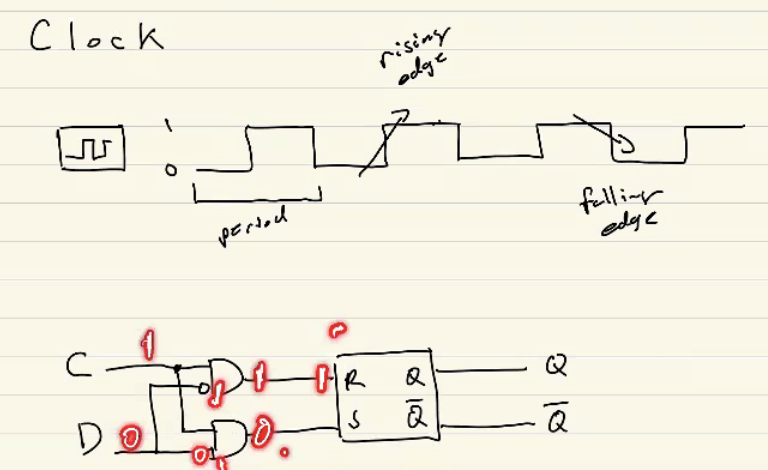 Clock
rising
edge
1
0
period
falling
edge
C 1 1 1 R Q Q
1
D 0 0 1 0 S Q̅ Q̅